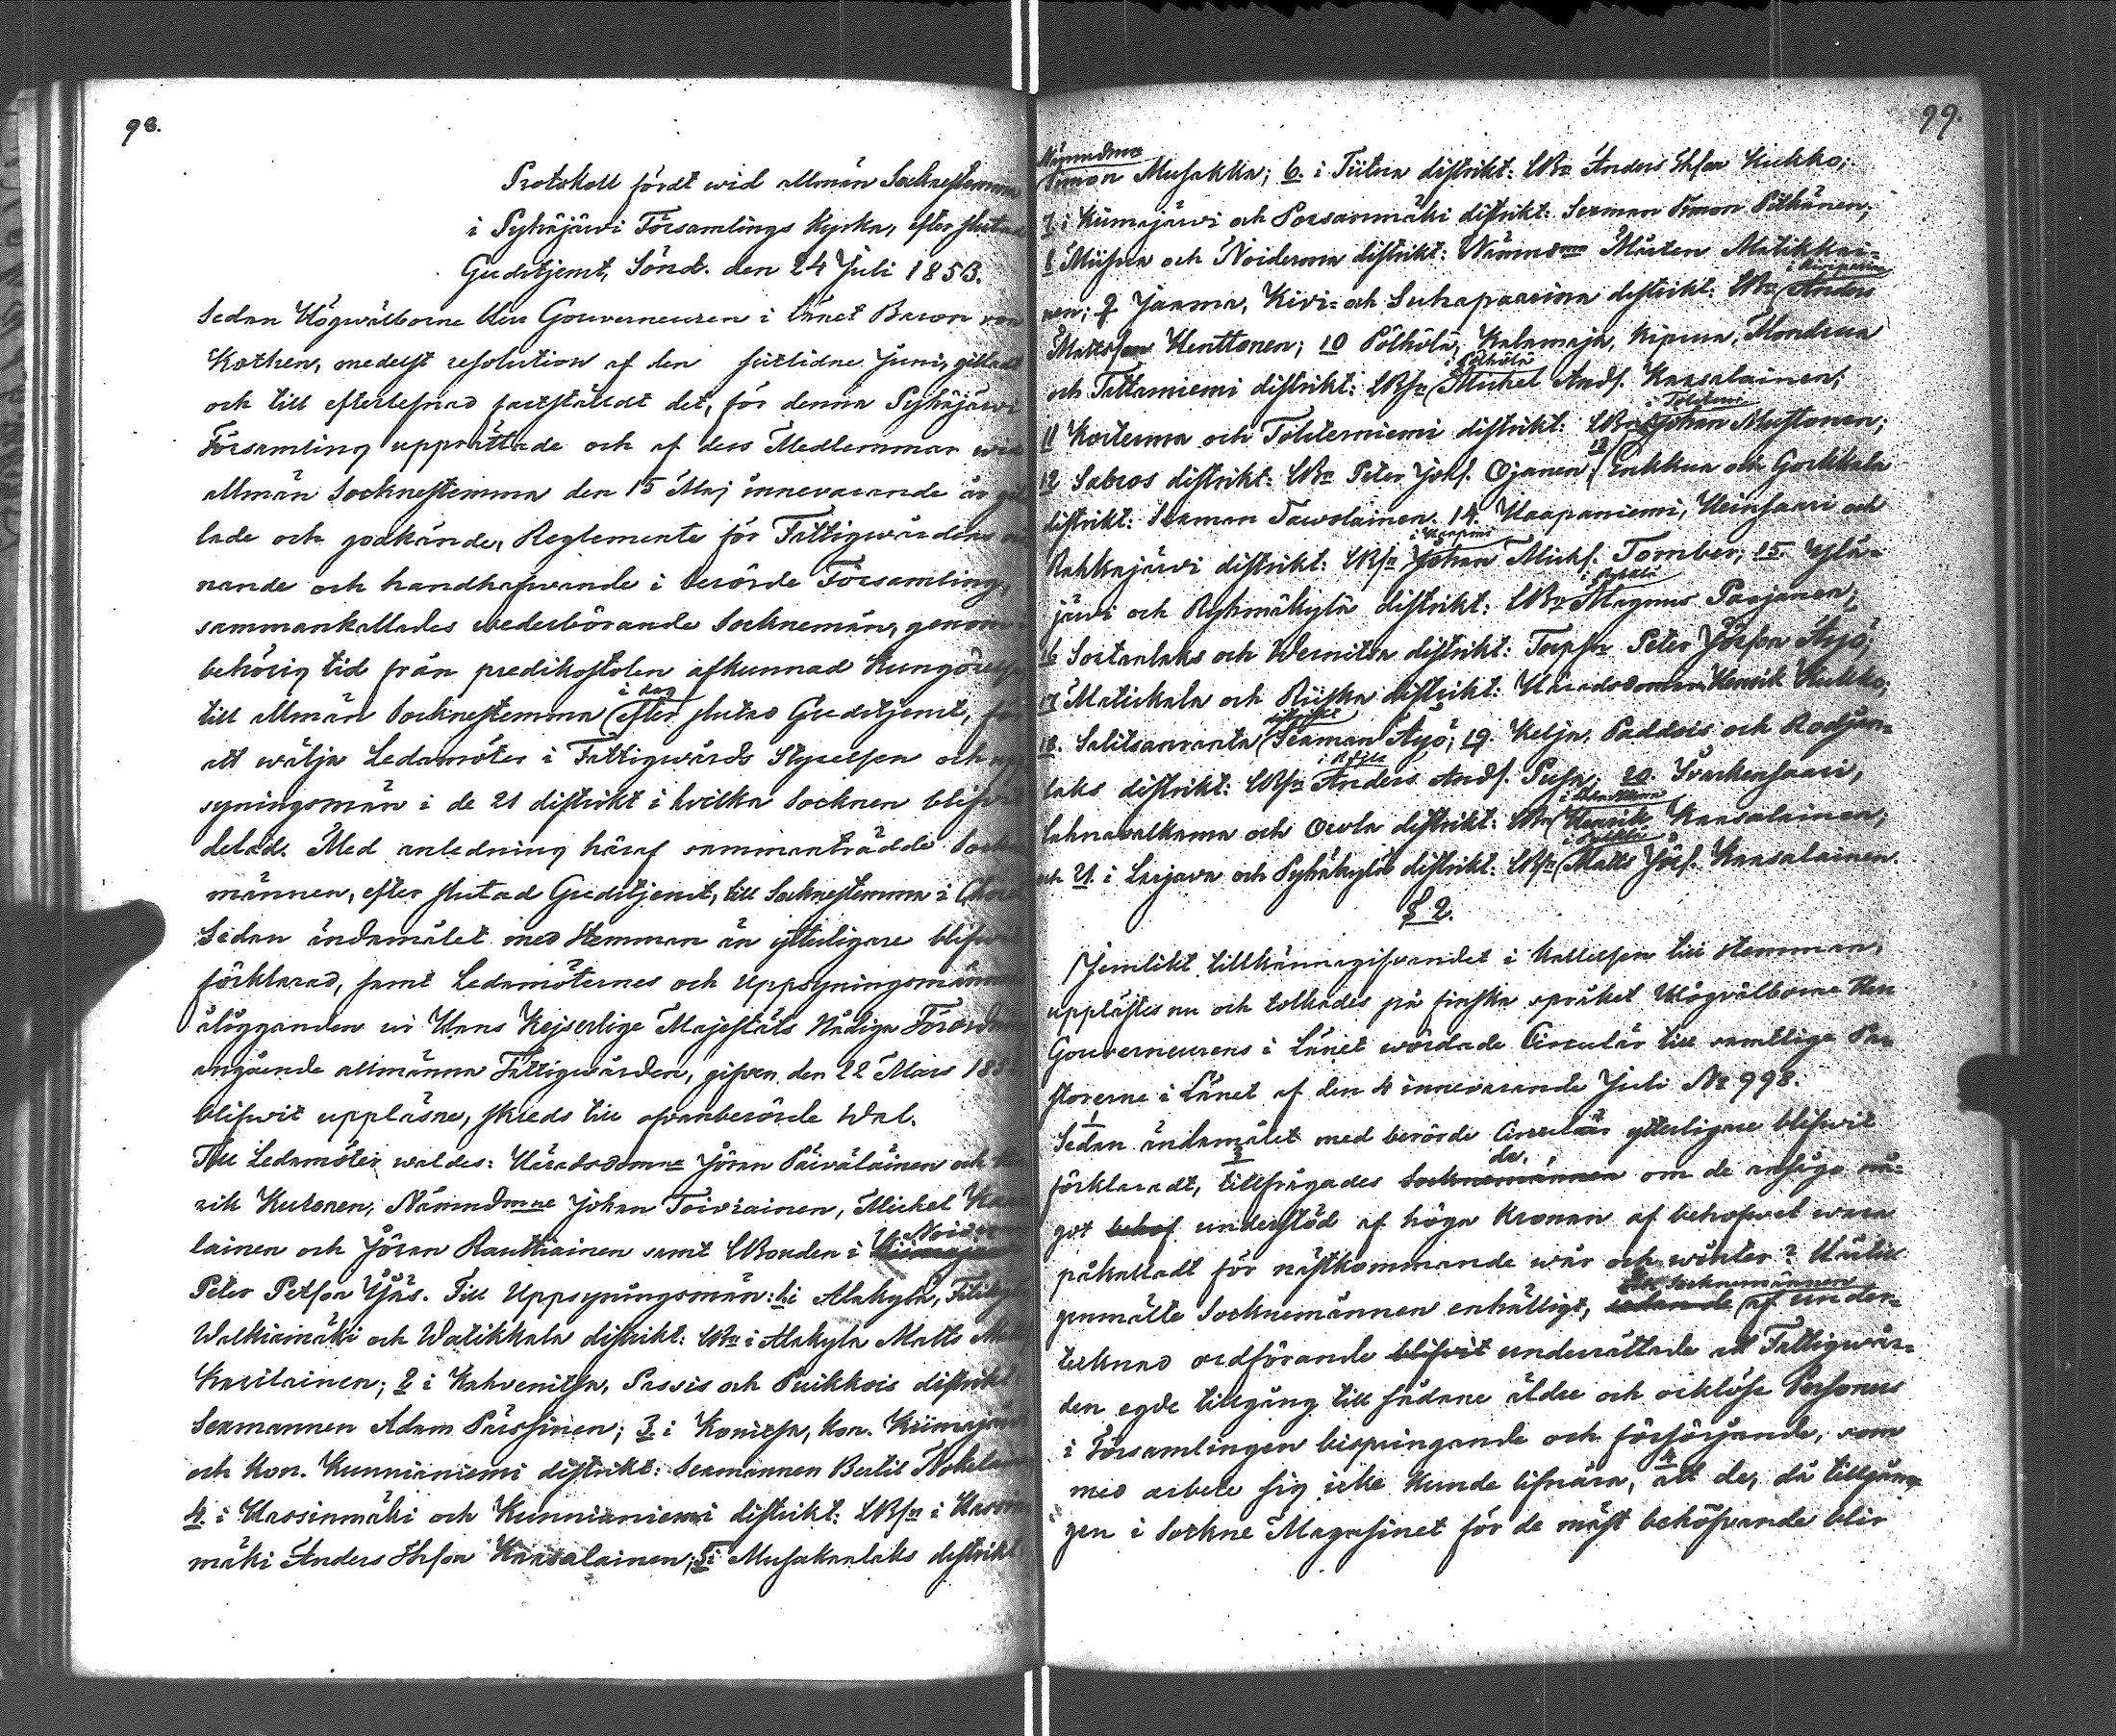 98.
Protokoll fördt wid allmän Socknestemma
i Pyhäjärwi Församlings Kyrka, efter slutad
Gudstjenst, Sönd. den 24 Juli 1853.
Sedan Högwälborne Herr Gouverneuren i Länet Baron von
Kothen, medelst resolution af den sistlidne Juni, gilladt
och till efterlefnad fastställdt det, för denna Pyhäjärwi
Församling upprättade och af dess Medlemmar wid
allmän Sockenstemma den 15 Maj innevarande år gil
lade och godkände, Reglemente för Fattigwårdens
nande och handhafwande i berörde Församling,
sammankallades wederbörande Socknemän, genom
behörig tid från predikostolen afkunnad Kungörelse
till allmän Socknestemma i dag efter slutad Gudstjenst, för
att wälja Ledamöter i Fattigwårds Styrelsen och upp
syningsmän i de 21 distrikt i hvilka Socknen blifvit
delad. Med anledning häraf sammanträdde Sockne
männen, efter slutad Gudstjenst, till Socknestemma i
Sedan ändamålet med Stemman än ytterligare blifwit
förklarad, samt Ledamöternes och Uppsyningsmännens
åligganden ur Hans Kejserlige Majestäts Nådiga Förordning
angående allmänna Fattigwården, gifven den 22 Mars 185
blifwit uppläsne, skreds till ofvanberörde Wal.
Till Ledamöter waldes: Häradsdomne Jöran Päiväläinen och
rik Kutonen, Nämndmne Johan Toiviainen, Mickel Kaasa
lainen och Jöran Rautiainen samt LBonden i Noiderma
Peter Petson Yjäs. Till Uppsyningsmän: 1 i Alakylä,
Walkiamäki och Watikkala distrikt: LBn i Alakylä Matts
Kasilainen; 2 i Kahvenitsa, Sassis och Puikkois distrikt
Sexmannen Adam Pärssinen; 3 i Konitsa, Kon. Kiimajärwi
och Kon. Kunnianiemi distrikt: Sexmannen Bertil
4 i Hassinmäki och Kunnianiemi distrikt: LBsn i Hassin
mäki Anders Ehrson Kaasalainen; 5 i Musakanlaks distrikt
99.
Nämndmn
Simon Musakka; 6. i Tiitua distrikt: LBn Anders Ehrson Kukko;
7 i Kiimajärwi och Porsaanmäki distrikt: Sexman Simon Pitkänen;
8 Miisua och Noiderma distrikt: Nämndmn Mårten Matikkai-
nen; 9 Jaama, Kivi- och Suhapaarina distrikt: LBn Anders
Mattsson Henttonen; 10 Pölhölä, Kalamaja, Kipura, Montrua
och Taittaniemi distrikt: LBsn i Pölhölä Mickel Ands. Kaasalainen;
11 Kosterma och Tohterniemi distrikt: LBn Johan Mustonen;
12 Sabros distrikt: LBn Peter Johs. Ojanen; 13 Enkkua och Gorkkala
distrikt: Sexman Tawolainen. 14. Haapaniemi, Heinsaari och
Rahkajärwi distrikt: LBsn Johan Mickf. Tomber; 15. Yllä-
järwi och Ryhmäkylä distrikt: LBn Magnus Paajanen;
16 Sortanlaks och Wernitsa distrikt: Torpsn Peter Jörson Äijö;
17 Matiskala och Riiska distrikt: Häradsdomaren Henrik Kukko;
18. Salitsanranta distrikt Sexman Äijö; 19. Kelja, Paddois och Rodjan-
laks distrikt: LBsn Anders Ands. Pusa; 20. Svarkensaari,
Lahnavalkama och Orola distrikt: LBn Henrik Kaasalainen;
och 21. i Larjava och Pyhäkylä distrikt: LBsn Matts Jörs. Kaasalainen.
§ 2.
Jemlikt tillkännagifvandet i Kallelsen till stemman,
upplästes nu och tolkades på finska språket Högwälborne Herr
Gouverneurens i Länet wördade Circulär till samtlige Pa-
storerne i Länet af den 4 innevarande Juli № 998.
Sedan ändamålet med berörde Circulär ytterligare blifwit
förklaradt, tillfrågades de, Socknemännen om de ansågo nå-
got behof understöd af höga Kronan af behofwet wara
påkalladt för nästkommande wår och winter? Härtill
genmälte Socknemännen enhälligt, sedan de Socknemännen af under-
tecknad ordförande blifvit underrättade att Fattigwår-
den egde tillgång till sådane äldre och orklöse Personers
i Församlingen bispringande och försörjande, som
med arbete sig icke kunde lifnära, att de, då tillgån-
gen i Sockne Magasinet för de mäst behöfwande blir